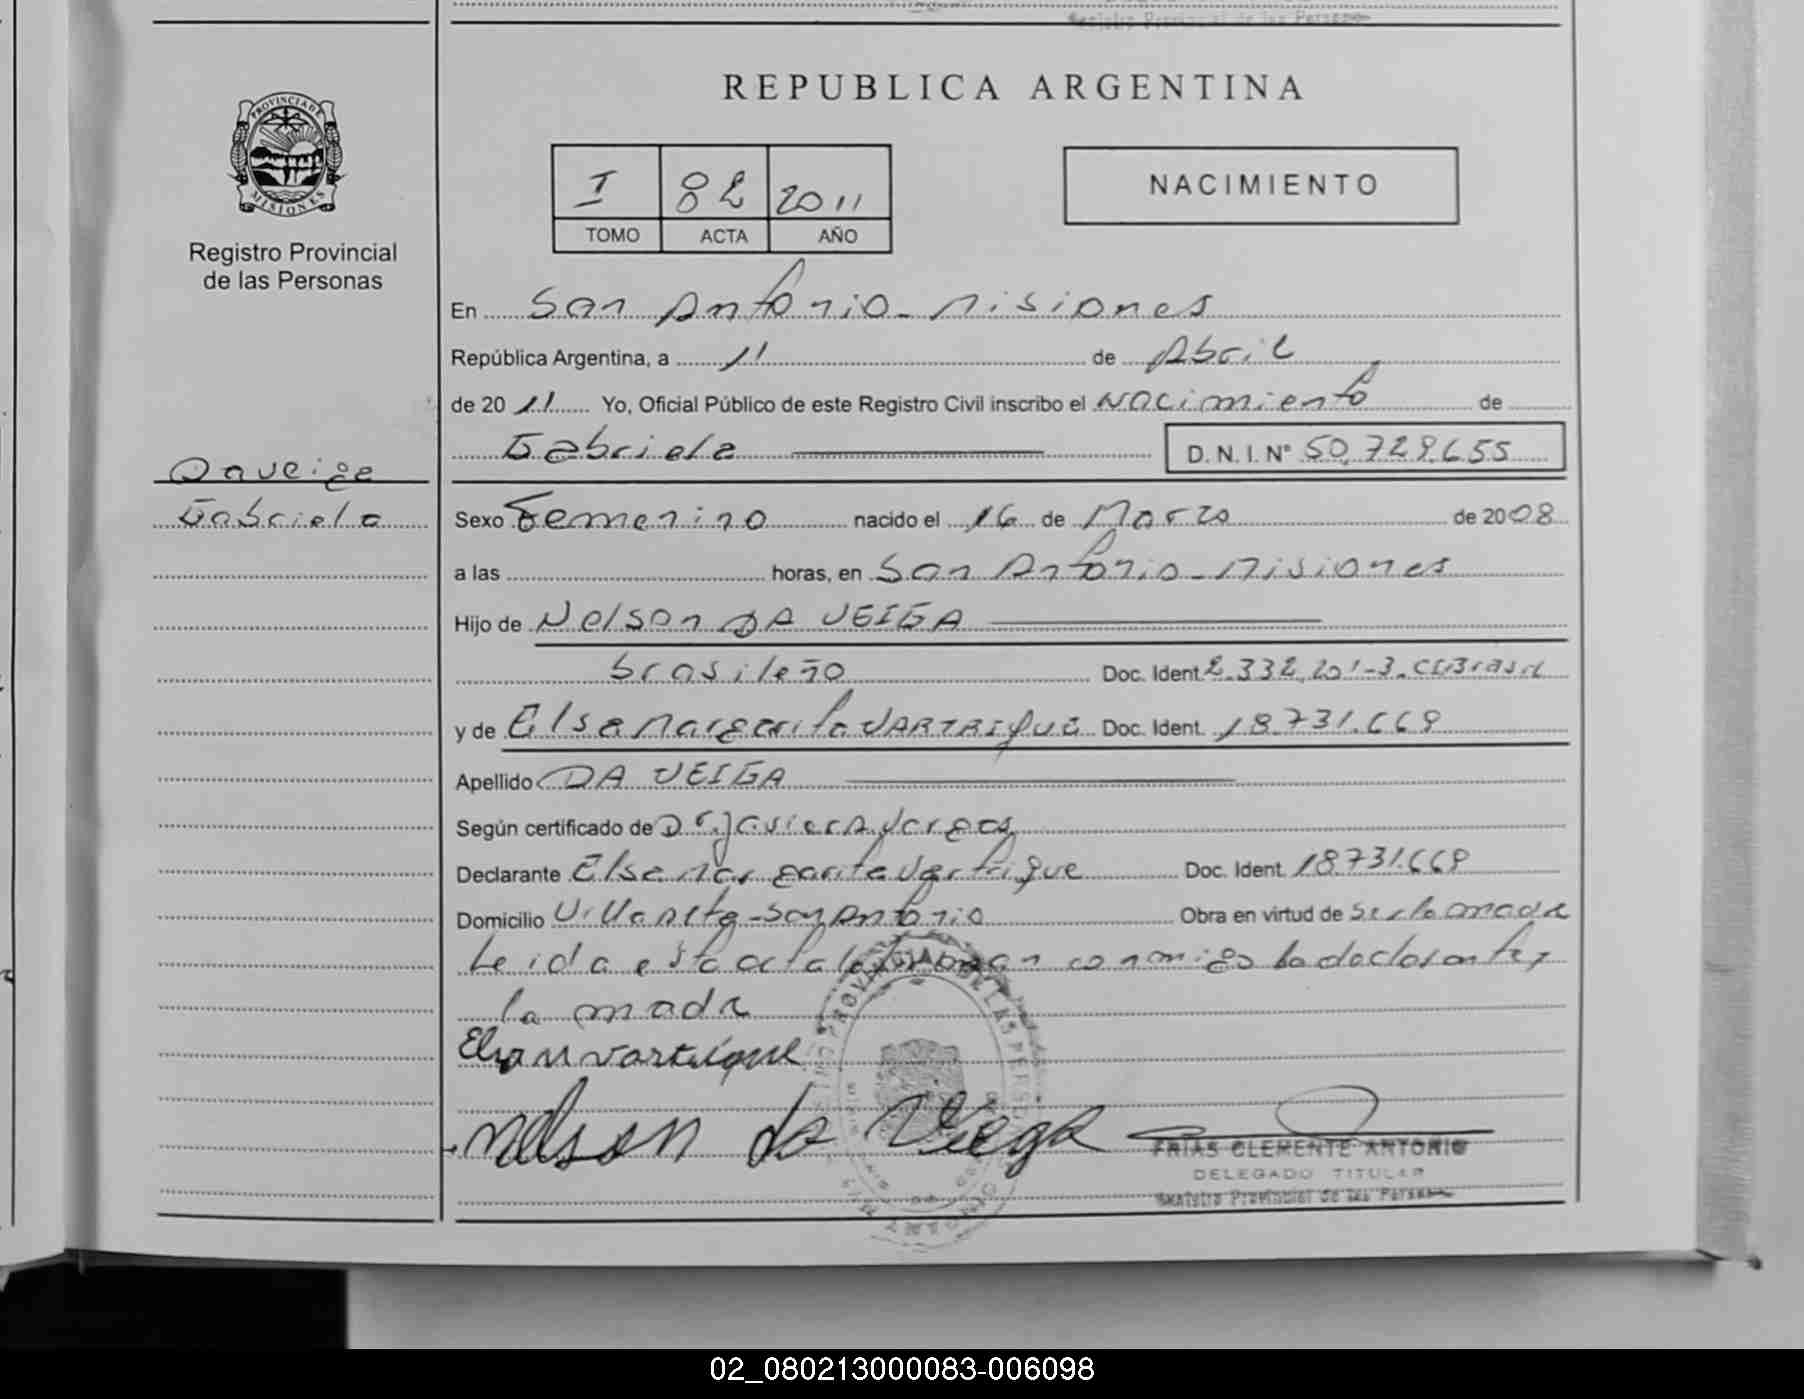 REPUBLICA ARGENTINA
PROVINCIA DE
MISIONES
Registro Provincial
de las Personas
I 82 2011
TOMO ACTA AÑO
NACIMIENTO
En San Antonio - Misiones
República Argentina, a 11 de Abril
de 2011 Yo, Oficial Público de este Registro Civil inscribo el Nacimiento de
Gabriela D.N.I. Nº 50.729.655
Da veiga
Gabriela
Sexo Femenino nacido el 16 de Marzo de 2008
a las horas, en San Antonio - Misiones
Hijo de Nelson DA VEIGA
brasileño Doc. Ident 2.332.201-3. CI Brasil
y de Elsa Margarita VARTRIQUE Doc. Ident. 18.731.669
Apellido DA VEIGA
Según certificado de Dr. Javier A. Vargas
Declarante Elsa Margarita Vartrique Doc. Ident. 18.731.669
Domicilio Villa Nelta - San Antonio Obra en virtud de ser la madre
Leida esta acta la firman conmigo la declarante y
la madre
Elsa M vartrique
nelson da Viega
FRIAS CLEMENTE ANTONIO
DELEGADO TITULAR
Registro Provincial de las Personas
02_080213000083-006098